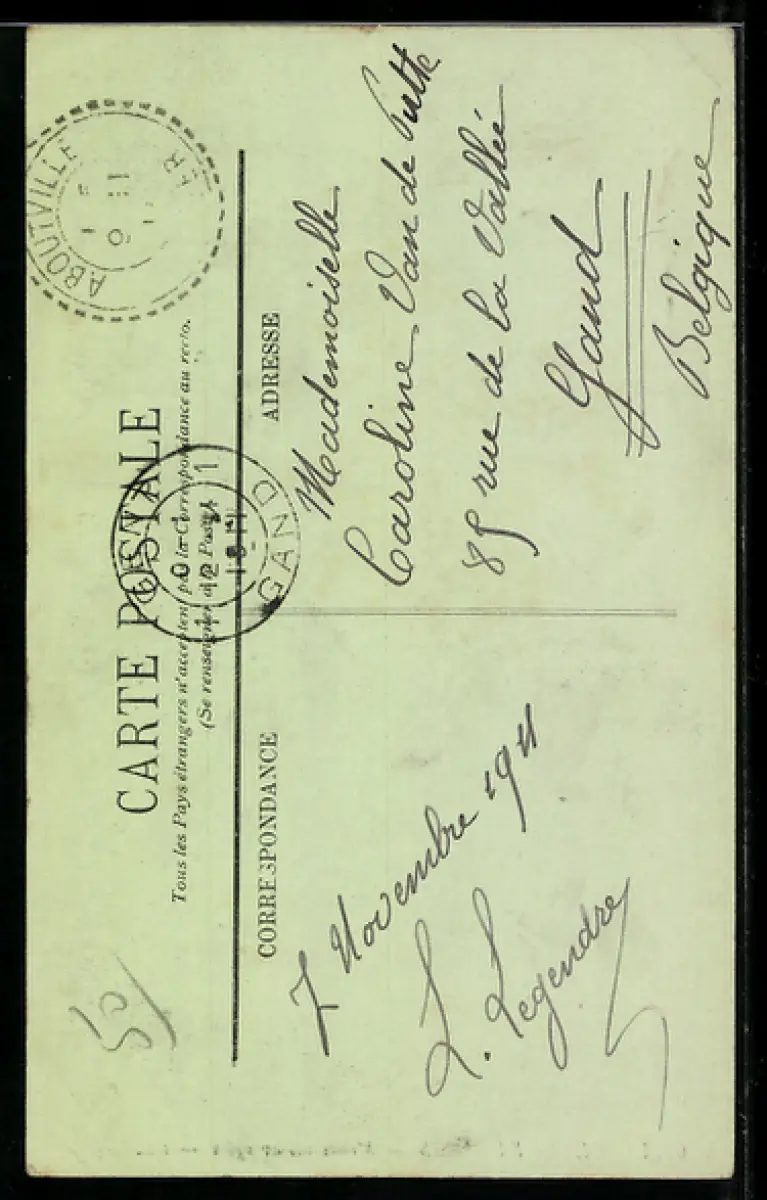 CARTE POSTALE
Tous les Pays étrangers n'acceptent pas la Correspondance au recto.
(Se renseigner à la Poste)
CORRESPONDANCE
ADRESSE
7 Novembre 1911
L. Legendre
Mademoiselle
Caroline Van de Putte
85 rue de la Vallée
Gand
Belgique
ABOUTVILLE
GAND
50